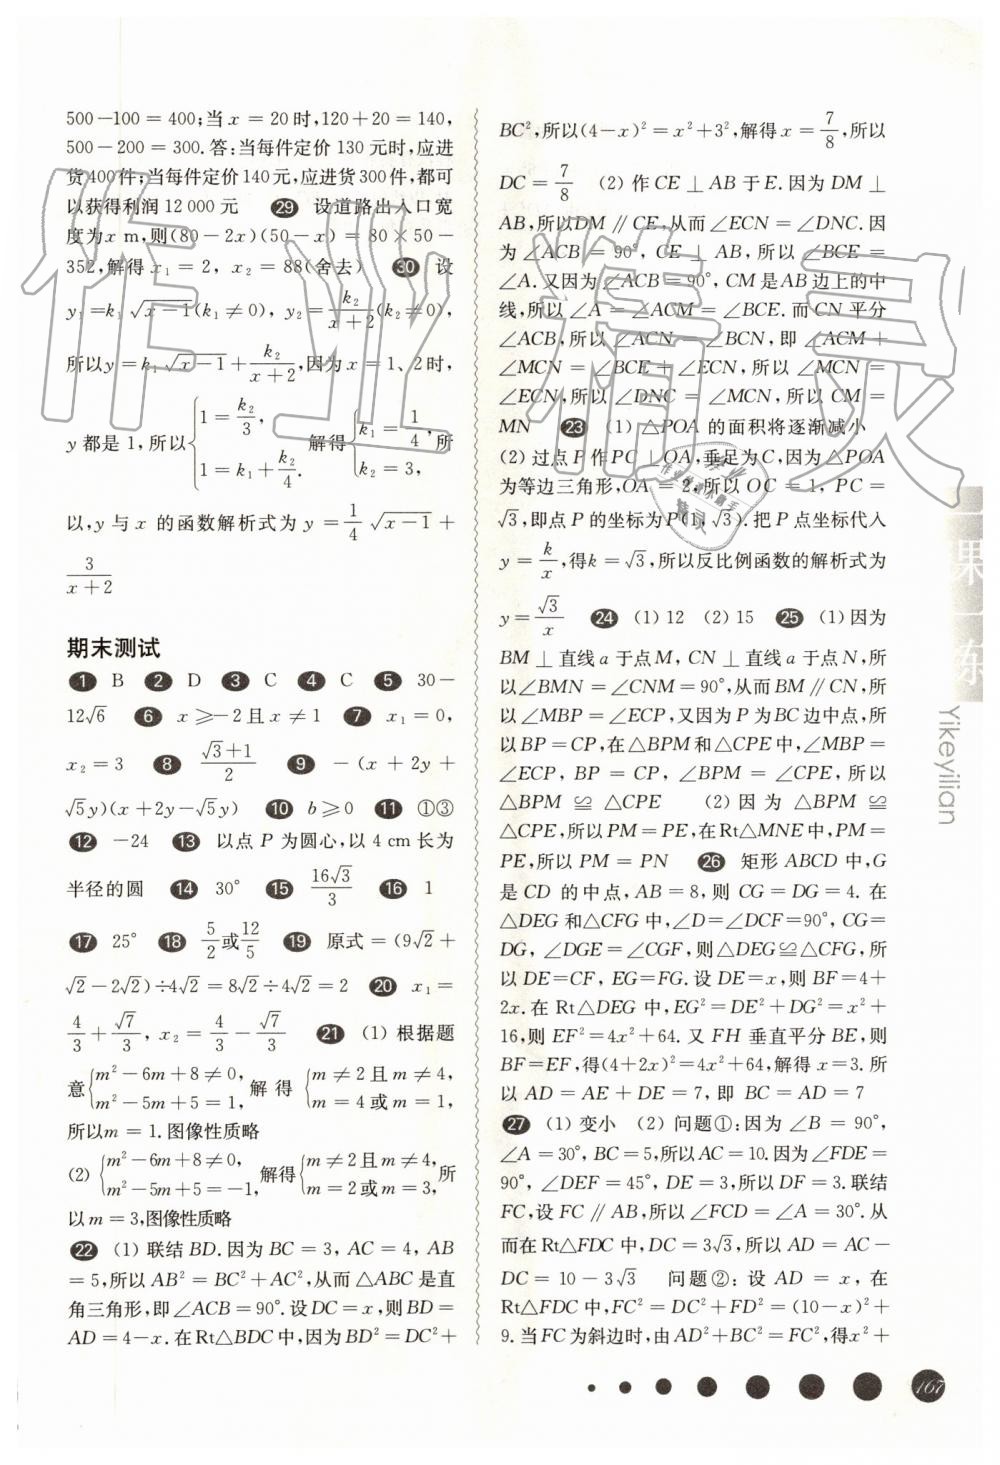 500－100＝400;当 x＝20时,120＋20＝140,
500－200＝300.答:当每件定价 130 元时,应进
货400件;当每件定价140元,应进货300件,都可
以获得利润 12 000 元 29 设道路出入口宽
度为x m,则(80－2x)(50－x)＝80×50－
352,解得 x₁＝2, x₂＝88(舍去) 30 设
y₁＝k₁√(x－1)(k₁≠0), y₂＝k₂/(x＋2)(k₂≠0),
所以y＝k₁√(x－1)＋k₂/(x＋2),因为x＝1、2时,
y 都是 1,所以{1＝k₂/3, 1＝k₁＋k₂/4. 解得{k₁＝1/4, k₂＝3, 所
以,y 与 x 的函数解析式为 y＝1/4√(x－1)＋
3/(x＋2)
期末测试
1 B 2 D 3 C 4 C 5 30－
12√6 6 x≥－2且x≠1 7 x₁＝0,
x₂＝3 8 (√3＋1)/2 9 －(x＋2y＋
√5y)(x＋2y－√5y) 10 b≥0 11 ①③
12 －24 13 以点 P 为圆心,以 4 cm 长为
半径的圆 14 30° 15 16√3/3 16 1
17 25° 18 5/2或12/5 19 原式＝(9√2＋
√2－2√2)÷4√2＝8√2÷4√2＝2 20 x₁＝
4/3＋√7/3, x₂＝4/3－√7/3 21 (1) 根据题
意{m²－6m＋8≠0, m²－5m＋5＝1, 解得{m≠2且m≠4, m＝4或m＝1,
所以m＝1.图像性质略
(2) {m²－6m＋8≠0, m²－5m＋5＝－1, 解得{m≠2且m≠4, m＝2或m＝3, 所
以m＝3,图像性质略
22 (1) 联结 BD.因为 BC＝3, AC＝4, AB
＝5,所以 AB²＝BC²＋AC²,从而△ABC是直
角三角形,即∠ACB＝90°.设DC＝x,则BD＝
AD＝4－x.在Rt△BDC中,因为BD²＝DC²＋
BC²,所以(4－x)²＝x²＋3²,解得x＝7/8,所以
DC＝7/8 (2) 作CE⊥AB于E.因为DM⊥
AB,所以DM∥CE,从而∠ECN＝∠DNC.因
为∠ACB＝90°, CE⊥AB, 所以∠BCE＝
∠A.又因为∠ACB＝90°, CM是AB边上的中
线,所以∠A＝∠ACM＝∠BCE.而CN平分
∠ACB,所以∠ACN＝∠BCN,即∠ACM＋
∠MCN＝∠BCE＋∠ECN,所以∠MCN＝
∠ECN,所以∠DNC＝∠MCN,所以CM＝
MN 23 (1) △POA 的面积将逐渐减小
(2) 过点P作PC⊥OA,垂足为C,因为△POA
为等边三角形,OA＝2,所以OC＝1, PC＝
√3,即点P的坐标为P(1,√3).把P点坐标代入
y＝k/x,得k＝√3,所以反比例函数的解析式为
y＝√3/x 24 (1) 12 (2) 15 25 (1) 因为
BM⊥直线a于点M, CN⊥直线a于点N,所
以∠BMN＝∠CNM＝90°,从而BM∥CN,所
以∠MBP＝∠ECP,又因为P为BC边中点,所
以BP＝CP,在△BPM和△CPE中,∠MBP＝
∠ECP, BP＝CP, ∠BPM＝∠CPE, 所以
△BPM≌△CPE (2) 因为△BPM≌
△CPE,所以PM＝PE,在Rt△MNE中,PM＝
PE,所以PM＝PN 26 矩形ABCD中,G
是CD的中点,AB＝8,则CG＝DG＝4.在
△DEG和△CFG中,∠D＝∠DCF＝90°, CG＝
DG, ∠DGE＝∠CGF,则△DEG≌△CFG,所
以DE＝CF, EG＝FG.设DE＝x,则BF＝4＋
2x.在Rt△DEG中,EG²＝DE²＋DG²＝x²＋
16,则EF²＝4x²＋64.又FH垂直平分BE,则
BF＝EF,得(4＋2x)²＝4x²＋64,解得x＝3.所
以AD＝AE＋DE＝7,即BC＝AD＝7
27 (1) 变小 (2) 问题①:因为∠B＝90°,
∠A＝30°, BC＝5,所以AC＝10.因为∠FDE＝
90°, ∠DEF＝45°, DE＝3,所以DF＝3.联结
FC,设FC∥AB,所以∠FCD＝∠A＝30°.从
而在Rt△FDC中,DC＝3√3,所以AD＝AC－
DC＝10－3√3 问题②: 设AD＝x, 在
Rt△FDC中,FC²＝DC²＋FD²＝(10－x)²＋
9.当FC为斜边时,由AD²＋BC²＝FC²,得x²＋
一课一练
Yikeyilian
167
作业精灵